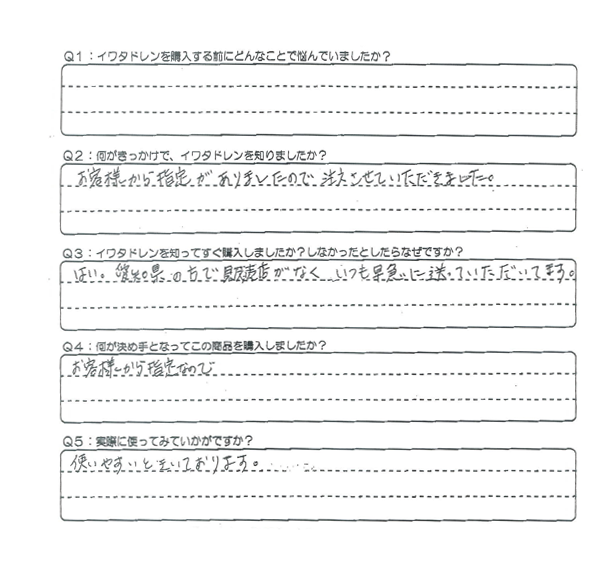 Q1：イワタドレンを購入する前にどんなことで悩んでいましたか？
Q2：何がきっかけで、イワタドレンを知りましたか？
お客様から指定がありましたので 注文させていただきました。
Q3：イワタドレンを知ってすぐ購入しましたか？しなかったとしたらなぜですか？
はい。愛知県の方で販売店がなく いつも早急に送っていただいてます。
Q4：何が決め手となってこの商品を購入しましたか？
お客様から指定なので
Q5：実際に使ってみていかがですか？
使いやすいと聞いております。